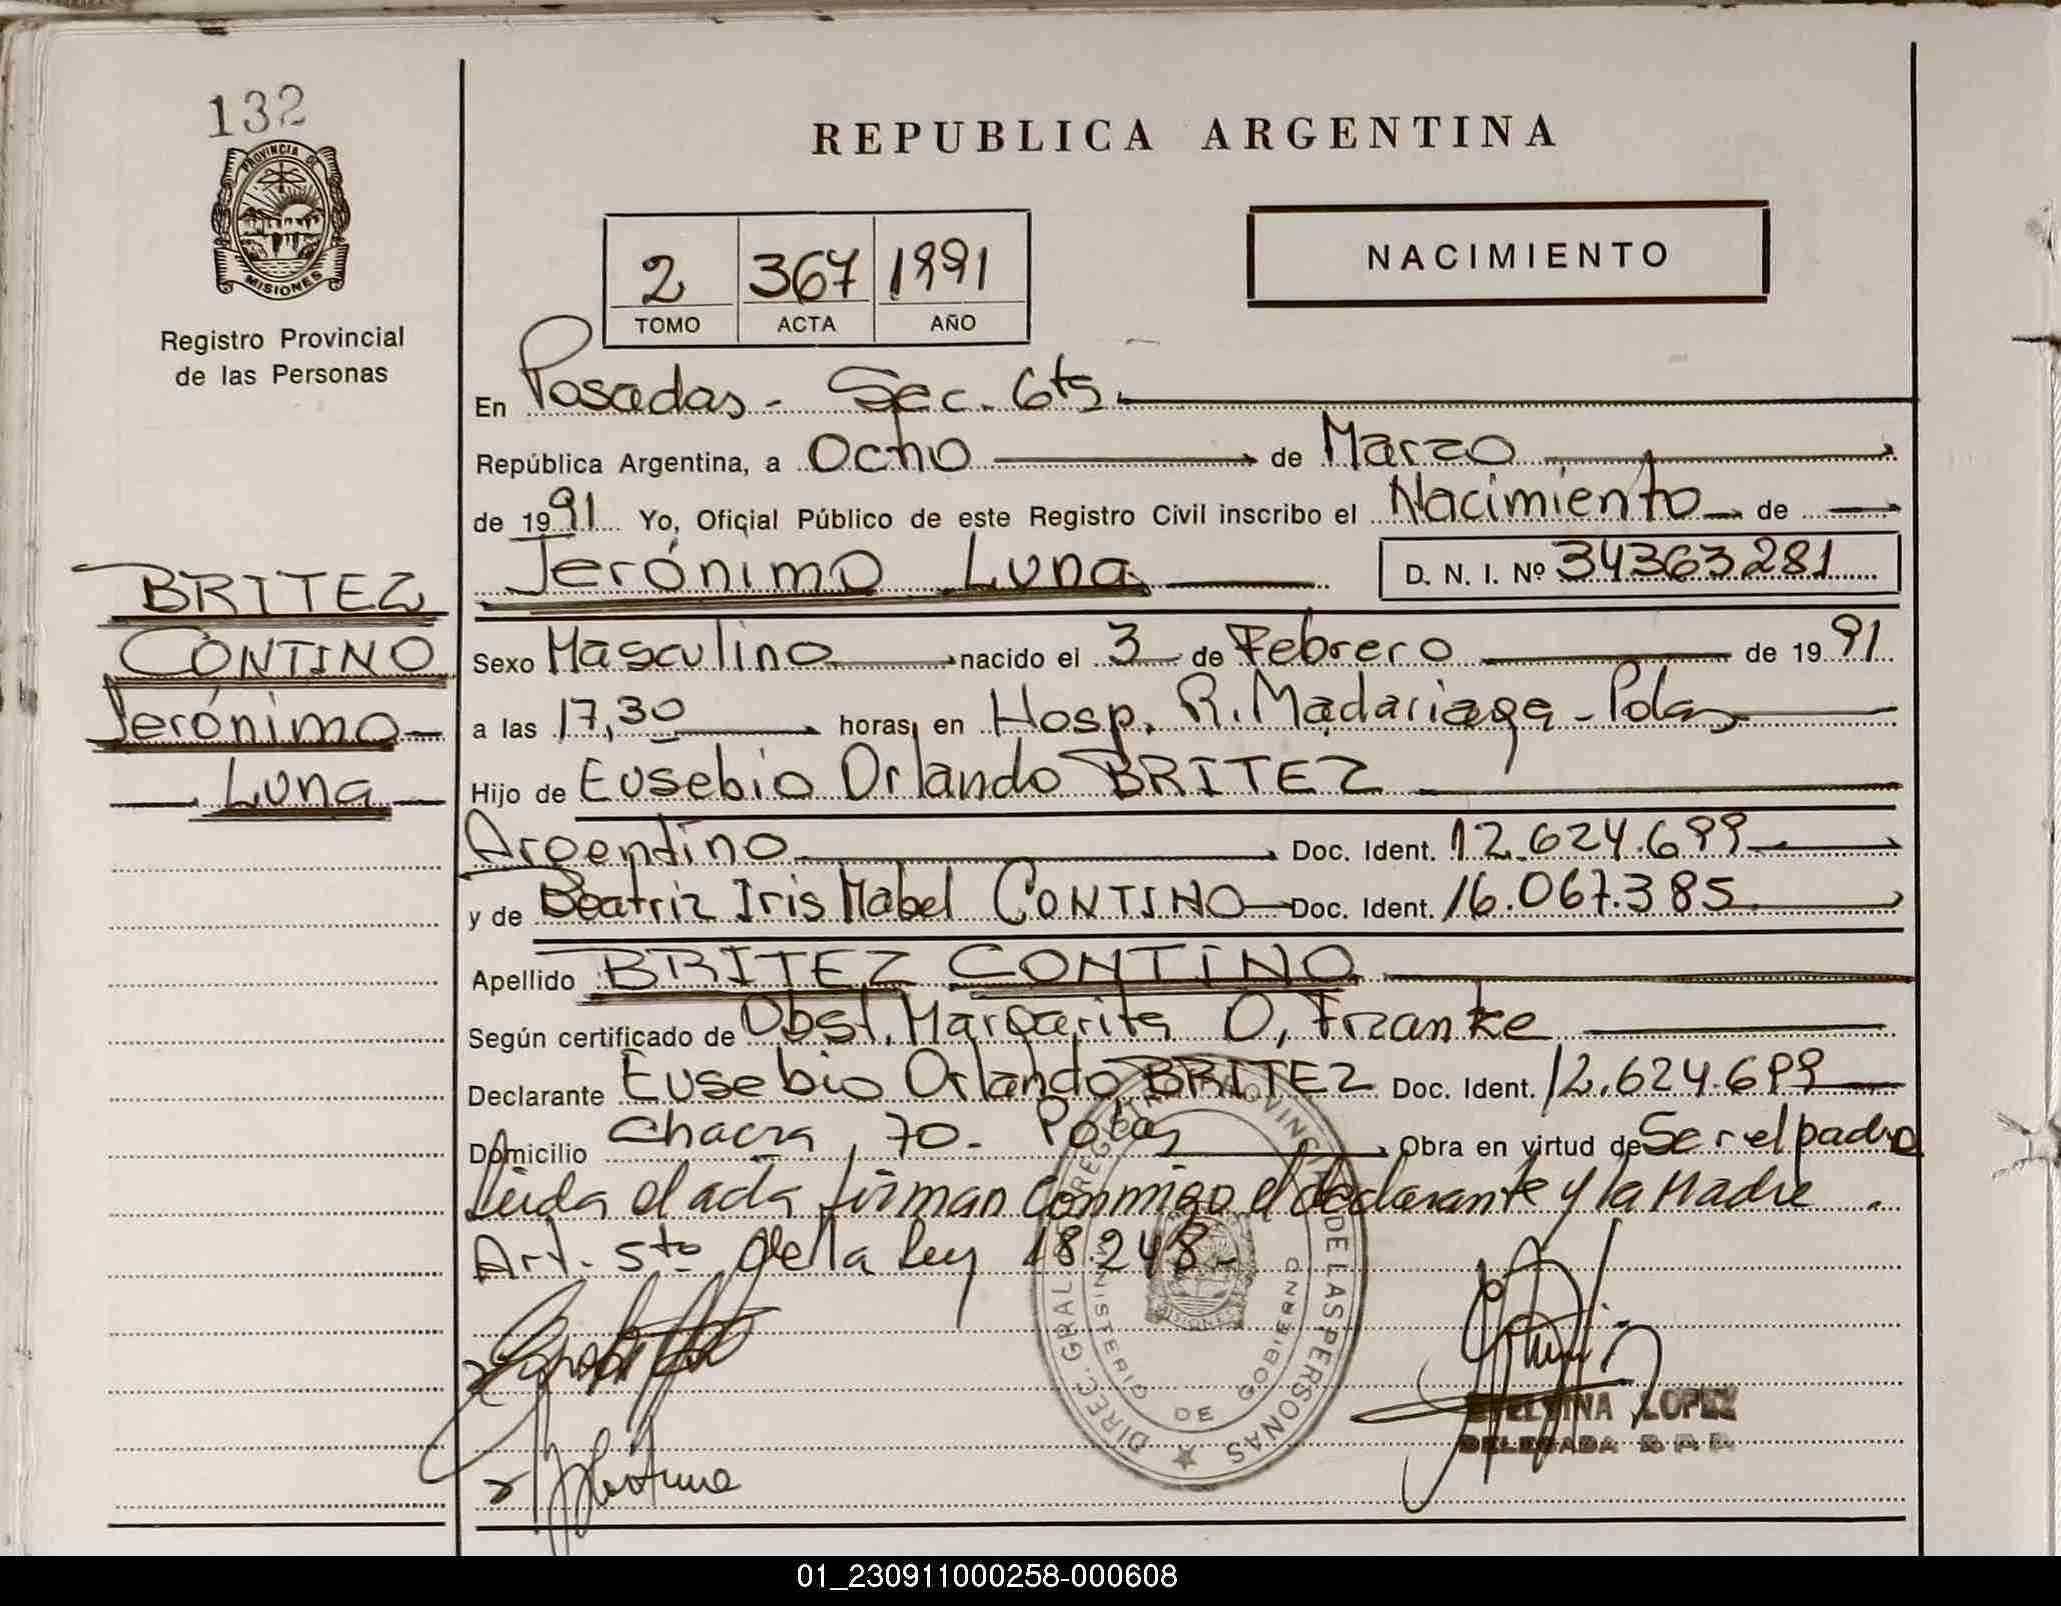 132
PROVINCIA DE
MISIONES
Registro Provincial
de las Personas
BRITEZ
CONTINO
Jerónimo
Luna
REPUBLICA ARGENTINA
2 367 1991
TOMO ACTA AÑO
NACIMIENTO
En Posadas - Sec. 6ta.
República Argentina, a Ocho de Marzo
de 1991 Yo, Oficial Público de este Registro Civil inscribo el Nacimiento de
Jerónimo Luna D. N. I. Nº 34363281
Sexo Masculino nacido el 3 de Febrero de 1991
a las 17,30 horas, en Hosp. R. Madariaga - Pdas
Hijo de Eusebio Orlando BRITEZ
Argentino Doc. Ident. 12.624.699
y de Beatriz Iris Mabel CONTINO Doc. Ident. 16.067.385
Apellido BRITEZ CONTINO
Según certificado de Obst. Margarita O, Franke
Declarante Eusebio Orlando BRITEZ Doc. Ident. 12.624.699
Domicilio Chacra, 70 - Pdas Obra en virtud de Ser el padre
Leida el acta firman conmigo el declarante y la Madre.
Art. 5to de la Ley 18.248 -
DIREC. GRAL REGISTRO PROVINCIAL DE LAS PERSONAS
MINISTERIO DE GOBIERNO
MISIONES
LOPEZ
DELEGADA R. P. P.
01_230911000258-000608